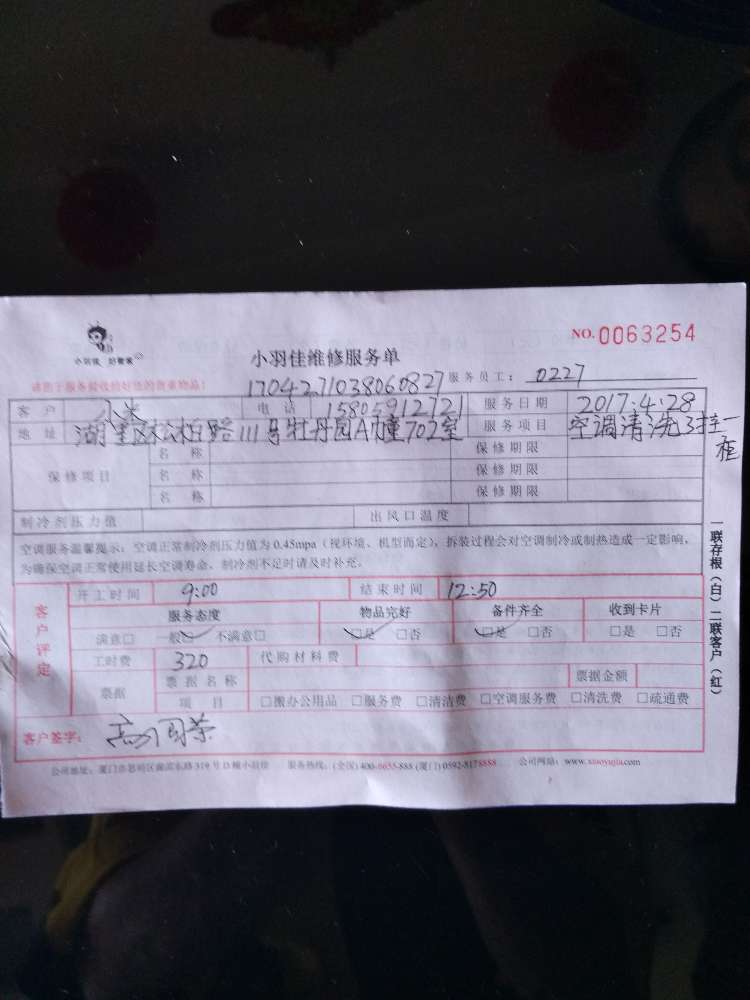 NO.0063254
小羽佳 好管家
小羽佳维修服务单
请勿于服务验收给好佳的贵重物品！
1704271038060827 服务员工： 0227
客户 小米 电话 15805912721 服务日期 2017.4.28
地址 湖里区松柏路111号牡丹园A幢702室 服务项目 空调清洗3挂一柜
保修项目 名称 保修期限
名称 保修期限
名称 保修期限
制冷剂压力值 出风口温度
空调服务温馨提示：空调正常制冷剂压力值为0.45mpa（视环境、机型而定），拆装过程会对空调制冷或制热造成一定影响，
为确保空调正常使用延长空调寿命、制冷剂不足时请及时补充。
客户评定
开工时间 9:00 结束时间 12:50
服务态度 物品完好 备件齐全 收到卡片
满意□ 一般□ 不满意□ □是 □否 □是 □否 □是 □否
工时费 320 代购材料费
票据 票据名称 票据金额
项目 □搬办公用品 □服务费 □清洁费 □空调服务费 □清洗费 □疏通费
客户签字：
一联存根（白）二联客户（红）
公司地址：厦门市思明区湖滨东路319号D幢小羽佳 服务热线：(全国)400-6655-888 (厦门)0592-8178888 公司网站：www.xiaoyujia.com